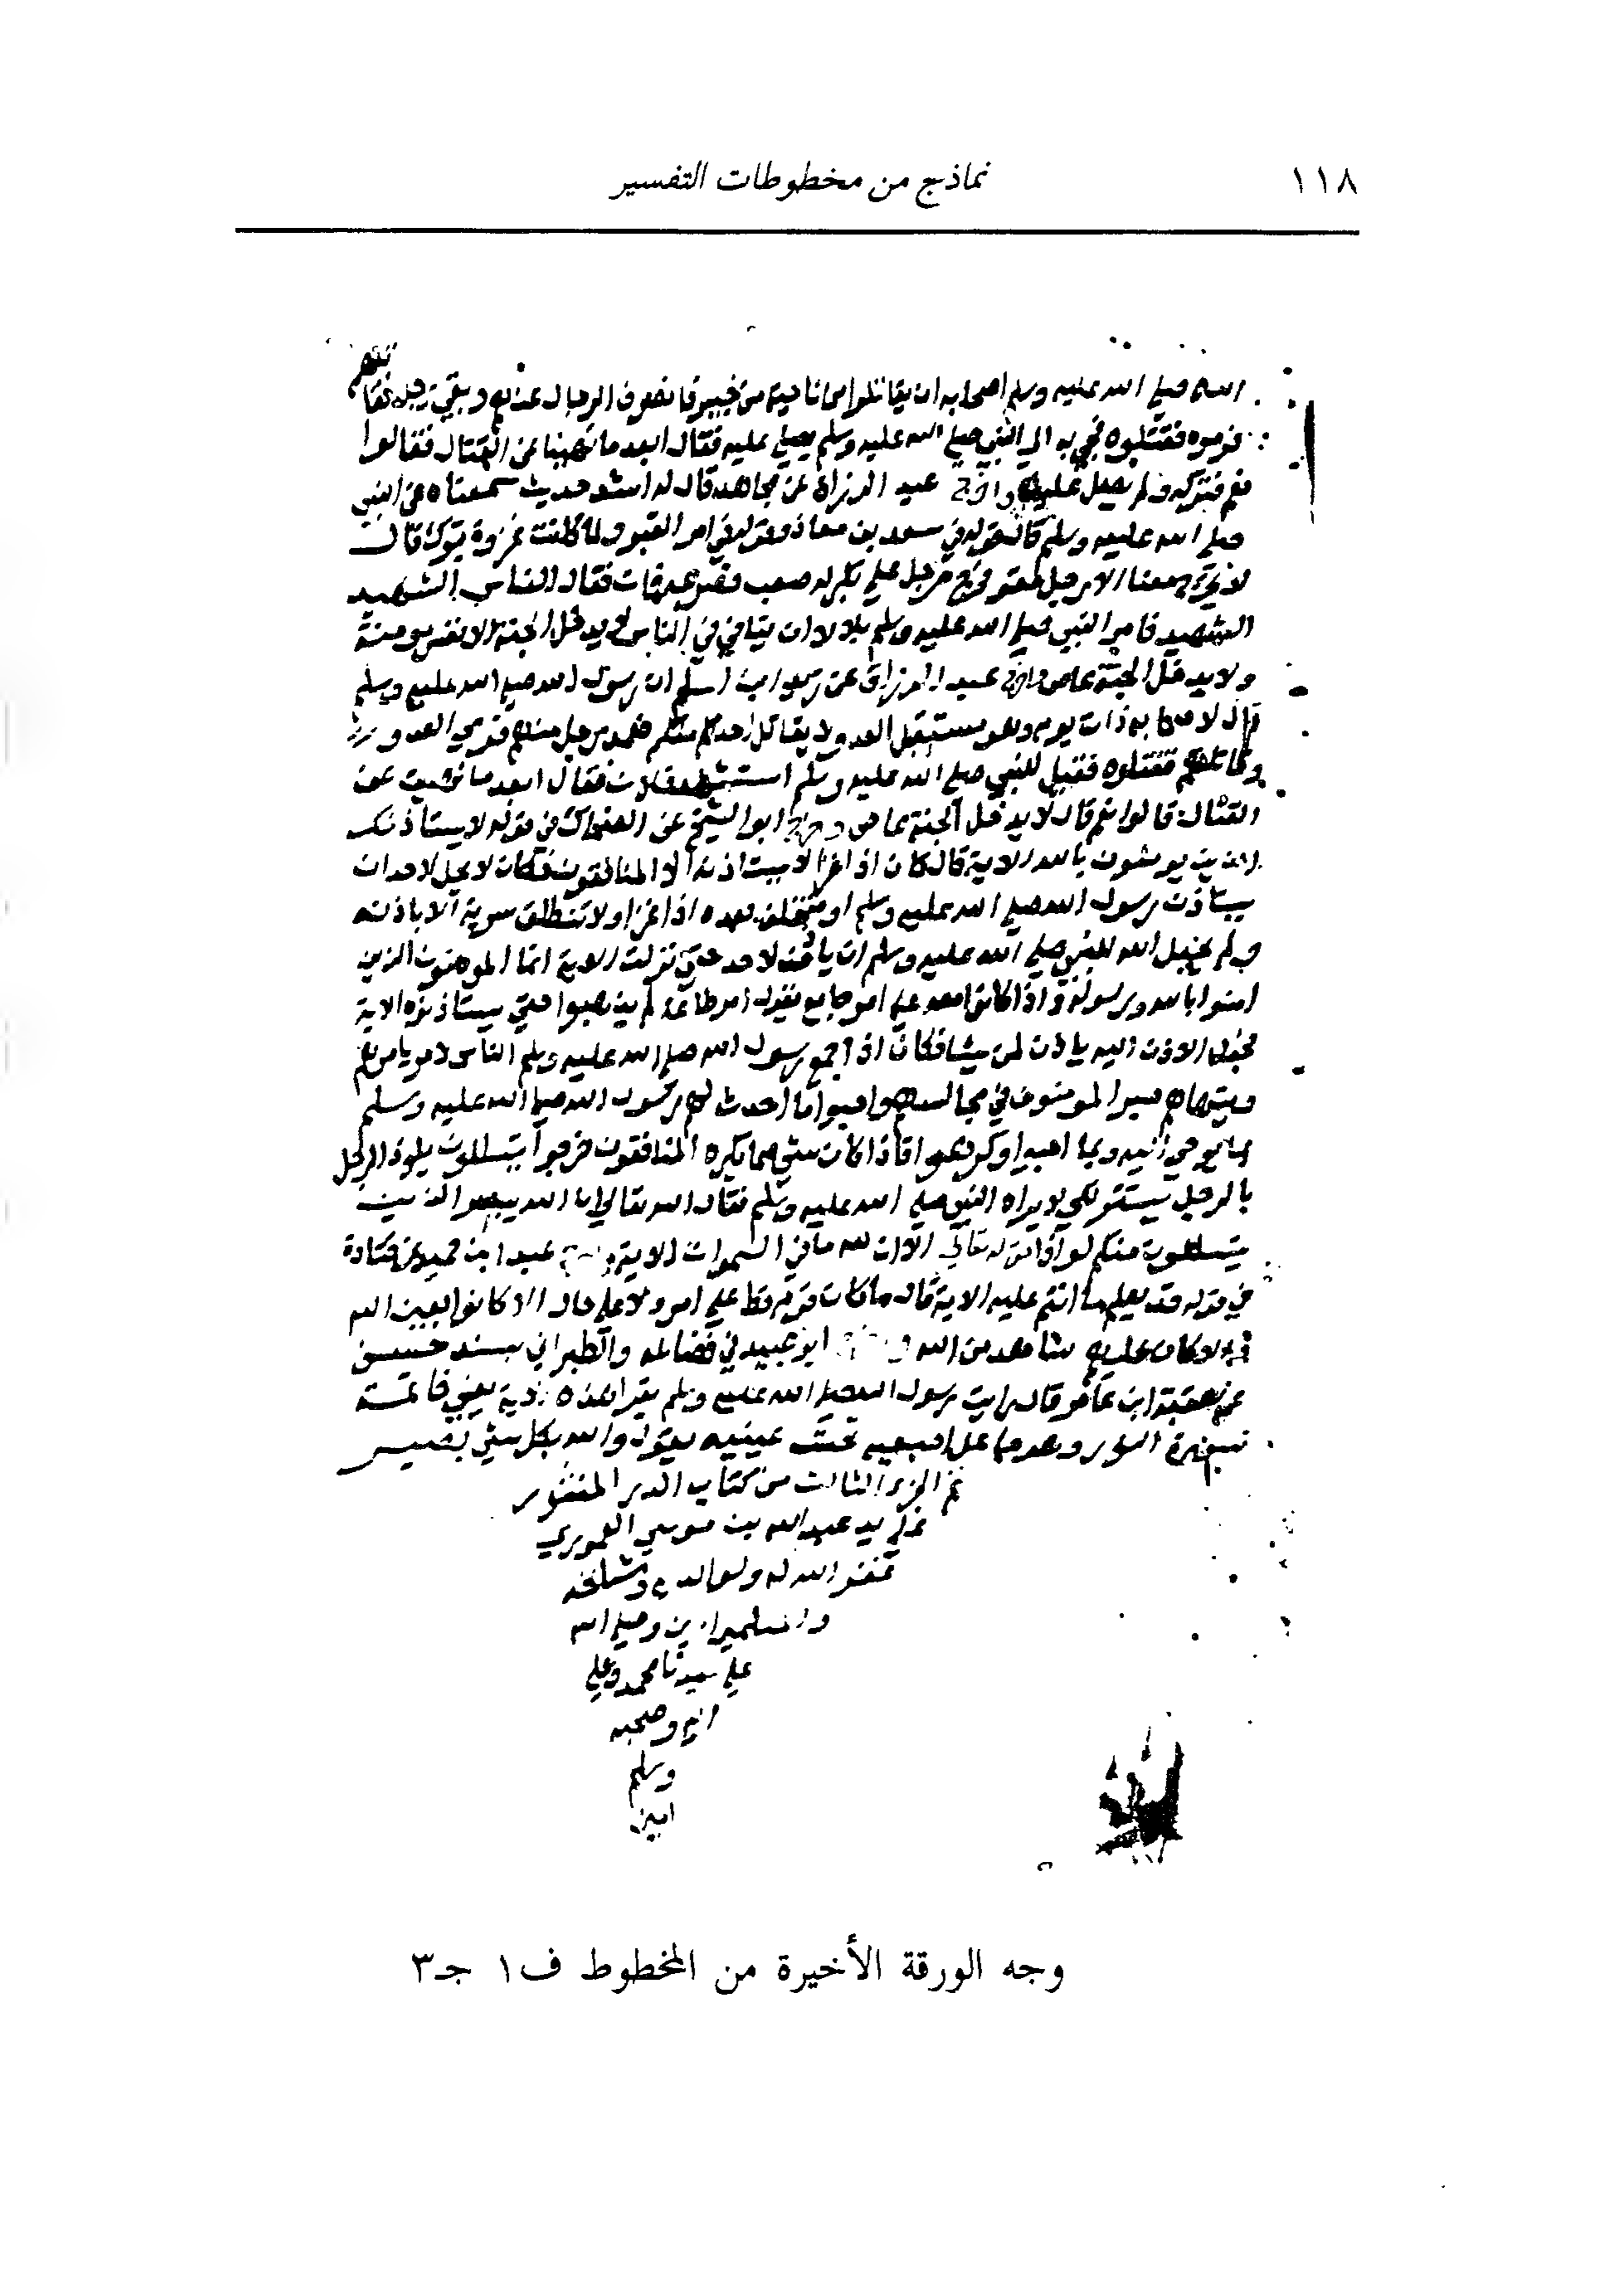 ١١٨
نماذج من مخطوطات التفسير
الله صلى الله عليه وسلم اصحابه ان يقاتلوا من ناحية من خيبر فانصرف الرجال عنهم وبقي رجل فقاتلهم
فرموه فقتلوه فجي به الى النبي صلى الله عليه وسلم يصلي عليه فقال ابعد ما نهينا عن القتال فقالوا
نعم فتركه ولم يصل عليه واخرج عبد الرزاق عن مجاهد قال اشد حديث سمعناه عن النبي
صلى الله عليه وسلم قوله في سعد بن معاذ وقوله في امر القبر ولما كانت غزوة تبوك قال
لا يخرج معنا الا رجل مقو فخرج رجل على بكر له صعب فصرعه فمات فقال الناس الشهيد
الشهيد فامر النبي صلى الله عليه وسلم بلالا ان ينادي في الناس لا يدخل الجنة الا نفس مومنة
ولا يدخل الجنة عاص واخرج عبد الرزاق عن زيد ابن اسلم ان رسول الله صلى الله عليه وسلم
قال لاصحابه ذات يوم وهو مستقبل العدو لا يقاتل احد منكم فعمد رجل منهم فرمي العدو
وقاتلهم فقتلوه فقيل للنبي صلى الله عليه وسلم استشهد فلان فقال ابعد ما نهيت عن
القتال قالوا نعم قال لا يدخل الجنة عاص واخرج ابو الشيخ عن الضحاك في قوله لا يستاذنك
الذين يومنون بالله الاية قال كان اذا غزا لا يستاذنه الا المنافقون فكان لا يحل لاحد ان
يستاذن رسول الله صلى الله عليه وسلم او يتخلف بعده اذا غزا ولا تنطلق سرية الا باذنه
ولم يجعل الله للنبي صلى الله عليه وسلم ان ياذن لاحد حتى نزلت الاية انما المومنون الذين
امنوا بالله ورسوله واذا كانوا معه على امر جامع يقول امر طاعة لم يذهبوا حتى يستاذنوه الاية
فجعل الاذن اليه ياذن لمن يشا فكان اذا جمع رسول الله صلى الله عليه وسلم الناس لامر يامرهم
وينهاهم صبر المومنون في مجالسهم واحبوا ما احدث لهم رسول الله صلى الله عليه وسلم
بما يوحي اليه وبما احبوا وكرهوا فاذا كان شي مما يكره المنافقون خرجوا يتسللون يلوذ الرجل
بالرجل يستتر لكي لا يراه النبي صلى الله عليه وسلم فقال الله تعالى ان الله يبصر الذين
يتسللون منكم لواذا قوله تعالى الا ان لله ما في السموات الاية عبد ابن حميد عن قتادة
في قوله قد يعلم ما انتم عليه الاية قال ما كان قوم قط على امر ولا على حال الا كانوا بعين الله
والا كان عليهم شاهد من الله ابو عبيد في فضائله والطبراني بسند حسن
عن عقبة ابن عامر قال رايت رسول الله صلى الله عليه وسلم يقرا هذه الاية يعني خاتمة
سورة النور وهو جاعل اصبعيه تحت عينيه يقول والله بكل شي بصير
تم الجزء الثالث من كتاب الدر المنثور
يد عبد الله بن موسي
غفر الله له ولوالديه ومشايخه
والمسلمين وصلى الله
على سيدنا محمد وعلى
اله وصحبه
وسلم
امين
وجه الورقة الأخيرة من المخطوط ف١ جـ٣